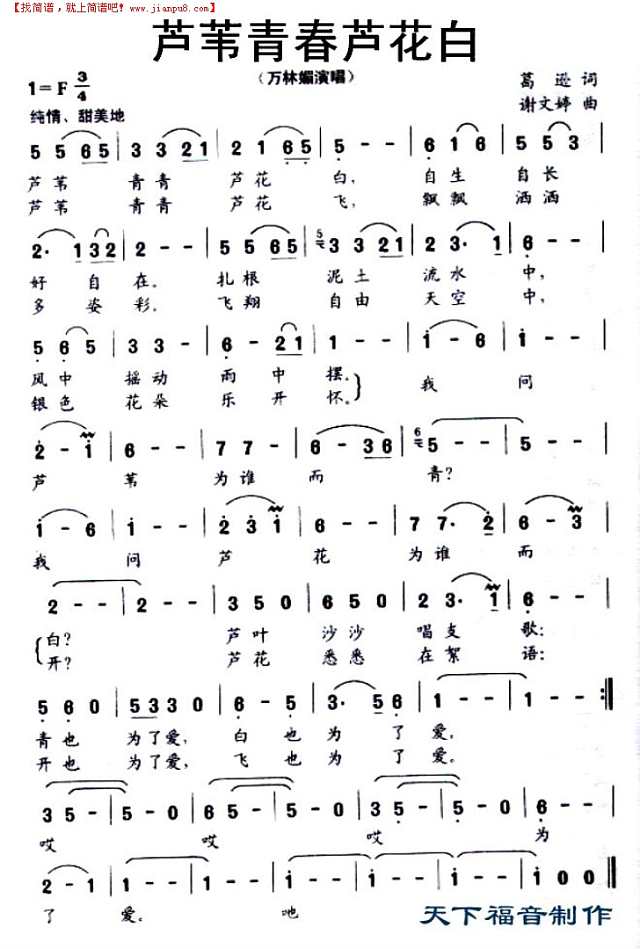 【找简谱，就上简谱吧！www.jianpu8.com】
芦苇青春芦花白
（万林媚演唱）
1=F 3/4
葛逊 词
纯情、甜美地
谢文婷 曲
5 5 6 5 | 3 3 2 1 | 2 1 6 5 | 5 - - | 6 1 6 | 5 5 3 |
芦 苇 青青 芦花 白， 自生 自长
芦 苇 青青 芦花 飞， 飘飘 洒洒
2· 1 3 2 | 2 - - | 5 5 6 5 | 3 3 2 1 | 2 3· 1 | 6 - - |
好 自 在。 扎根 泥土 流水 中，
多 姿 彩。 飞翔 自由 天空 中，
5 6 5 | 3 3 - | 6 - - | 6 - 2 1 | 1 - - | 1 - 6 |
风中 摇动 雨中 摆。 我 问
银色 花朵 乐开 怀。
2 - 1 | 6 - - | 7 7 - | 6 - 3 6 | 5 - - | 5 - - |
芦 苇 为谁 而 青？
1 - 6 | 2 3 1 | 6 - - | 7 7· 2 | 6 - 3 |
我 问 芦 花 为谁 而
2 - - | 2 - - | 3 5 0 | 6 5 0 | 2 3· 1 | 1 - 0 |
白？ 芦叶 沙沙 唱支 歌：
开？ 芦花 悉悉 在絮 语：
5 6 0 | 5 3 3 0 | 6 - 5 | 3· 5 6 | 1 - - | 1 - - :||
青也 为了爱， 白也 为 了 爱。
开也 为了爱， 飞也 为 了 爱。
3 5 - | 5 - 0 | 2 5 - | 5 - 0 | 3 6 - | 6 - 0 | 6 - - |
哎 哎 哎 为
2 - 1 | 1 - - | 1 - - | 1 - - | 1 - - | 1 0 0 ||
了 爱。 吔
天下福音制作